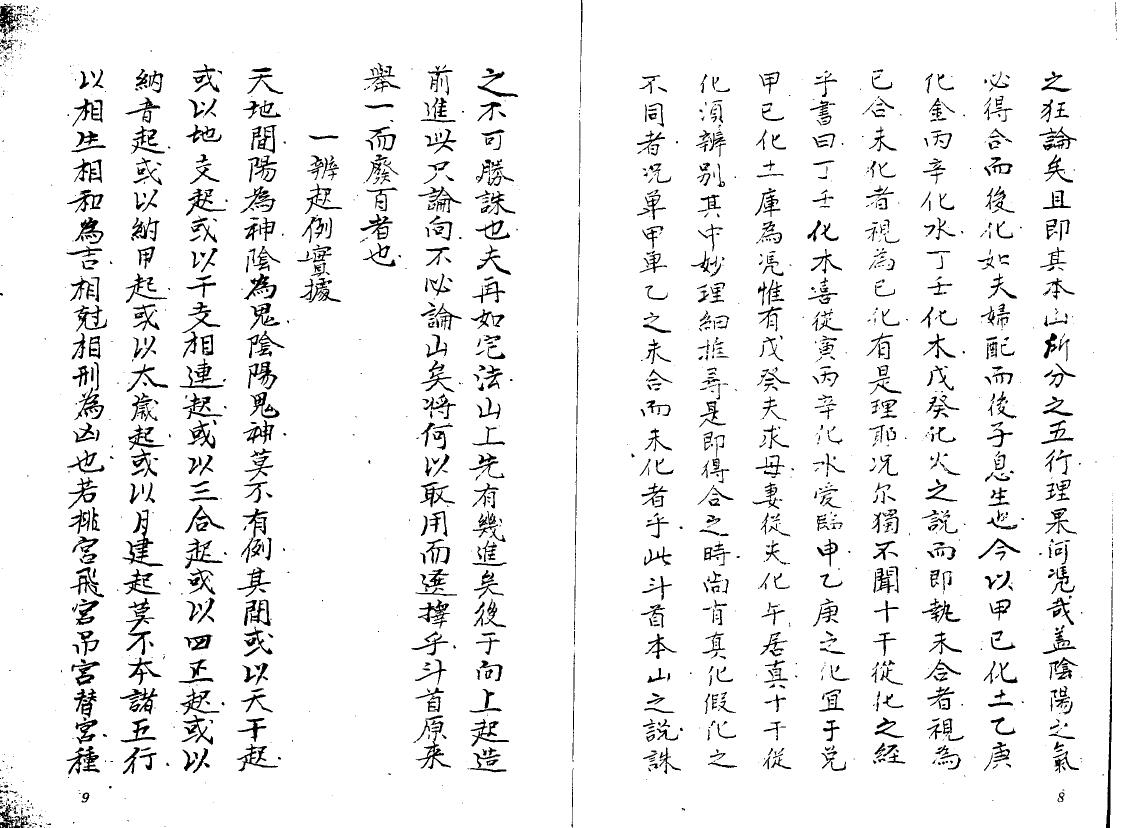 之狂論矣且即其本山所分之五行理果何憑哉盖陰陽之氣
必得合而後化如夫婦配而後子息生也今以甲已化土乙庚
化金丙辛化水丁壬化木戊癸化火之說而即執未合者視為
已合未化者視為已化有是理耶况尔獨不聞十干從化之經
乎書曰丁壬化木喜從寅丙辛化水愛臨申乙庚之化宜于兑
甲已化土庫為憑惟有戊癸夫求母妻從夫化午居真十干從
化須辨别其中妙理細推尋是即得合之時尚有真化假化之
不同者况單甲單乙之未合而未化者乎此斗首本山之說誅
8
之不可勝誅也夫再如宅法山上先有幾進矣後于向上起造
前進此只論向不必論山矣將何以取用而選擇乎斗首原来
舉一而廢百者也
一辨起例實據
天地間陽為神陰為鬼陰陽鬼神莫不有例其間或以天干起
或以地支起或以干支相連起或以三合起或以四正起或以
納音起或以納甲起或以太歲起或以月建起莫不本諸五行
以相生相和為吉相尅相刑為凶也若排宮飛宮吊宮替宮種
9